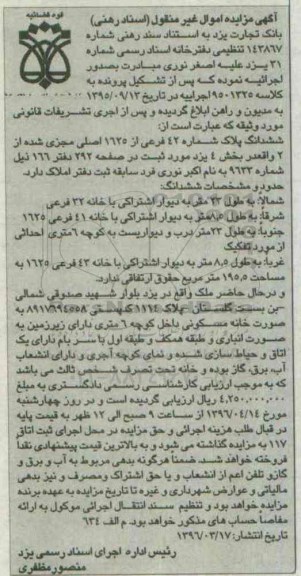 قوه قضائیه
آگهی مزایده اموال غیر منقول (اسناد رهنی)
بانک تجارت یزد به استناد سند رهنی شماره
۱۴۳۸۶۷ تنظیمی دفترخانه اسناد رسمی شماره
۳۱ یزد علیه اصغر نوری مبادرت بصدور
اجرائیه نموده که پس از تشکیل پرونده به
کلاسه ۹۵۰۱۳۳۵ اجراییه در تاریخ ۱۳۹۵/۰۹/۱۳
به مدیون و راهن ابلاغ گردیده و پس از اجری تشریفات قانونی
مورد وثیقه که عبارت است از:
ششدانگ پلاک شماره ۴۲ فرعی از ۱۶۲۵ اصلی مجزی شده از
۲ واقعدر بخش ۴ یزد مورد ثبت در صفحه ۲۹۲ دفتر ۱۶۶ ذیل
شماره ۹۶۳۳ به نام اکبر نوری فرد سابقه ثبت دفتر املاک دارد.
حدود و مشخصات ششدانگ:
شمالا: به طول ۲۳ متر به دیوار اشتراکی با خانه ۳۲ فرعی
شرقا: به طول ۸،۵ متر به دیوار اشتراکی با خانه ۴۱ فرعی ۱۶۲۵
جنوبا: به طول ۲۳ متر درب و دیواریست به کوچه ۶ متری احداثی
از مورد تفکیک
غربا: به طول ۸،۵ متر به دیوار اشتراکی با خانه ۴۳ فرعی ۱۶۲۵ به
مساحت ۱۹۵،۵ متر مربع حقوق ارتفاقی ندارد.
و درحال حاضر ملک واقع در یزد بلوار شهید صدوقی شمالی
-بن بست گلستان -پلاک ۱۱۱۴ کدپستی ۸۹۱۷۶۹۴۵۵۸ به
صورت خانه مسکونی داخل کوچه ۶ متری دارای زیرزمین به
صورت انباری و طبقه همکف و طبقه اول با سر بام دارای یک
اتاق و حیاط سازی شده و نمای کوچه آجری و دارای انشعاب
آب، برق، گاز بوده و خانه تحت تصرف شخص ثالث می باشد
که به موجب ارزیابی کارشناسی رسمی دادگستری به مبلغ
۴،۲۵۰،۰۰۰،۰۰۰ ریال ارزیابی گردیده است و در روز چهارشنبه
مورخ ۱۳۹۶/۰۴/۱۴ از ساعت ۹ صبح الی ۱۲ ظهر به قیمت پایه
در قبال طلب هزینه اجرائی و حق مزایده در محل اجرای ثبت اتاق
۱۱۷ به مزایده گذاشته می شود و به بالاترین قیمت پیشنهادی نقداً
فروخته خواهد شد. ضمناً هرگونه بدهی مربوط به آب و برق و
گاز و تلفن اعم از انشعاب و یا حق اشتراک ومصرف و نیز بدهی
مالیاتی و عوارض شهرداری و غیره تا تاریخ مزایده به عهده برنده
مزایده خواهد بود و تنظیم سند انتقال اجرائی موکول به ارائه
مفاصا حساب های مذکور خواهد بود. م الف ۶۳۴
تاریخ انتشار: ۱۳۹۶/۰۳/۱۷
رئیس اداره اجرای اسناد رسمی یزد
منصور مظفری